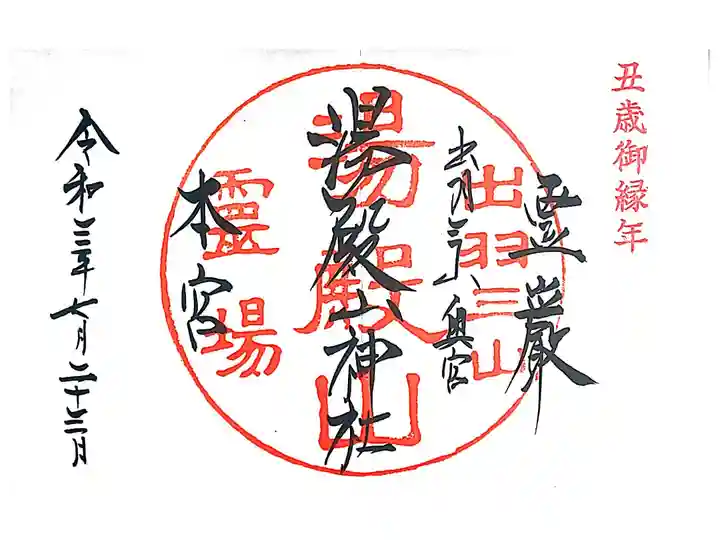 丑歳御縁年
霊巌
出羽三山
出羽三山奥宮
湯殿山
湯殿山神社
靈場
本宮
令和三年七月二十三日